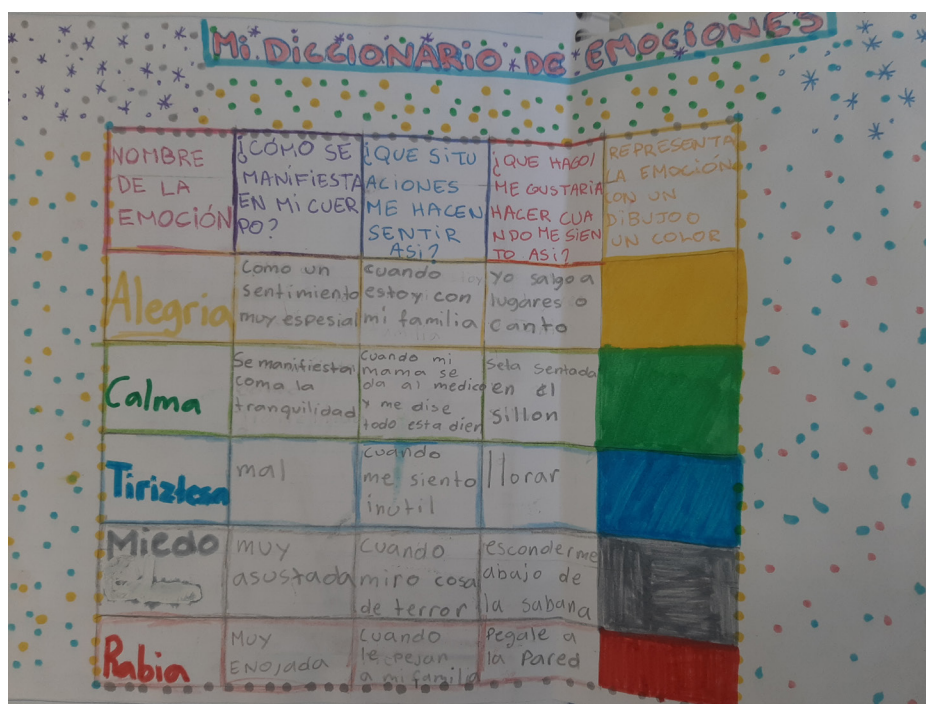 Mi DiCCiONARiO DE EMOCIONES
NOMBRE
DE LA
EMOCIÓN
¿CÓMO SE
MANIFIESTA
EN Mi CUER
PO?
¿QUE SiTU
ACIONES
ME HACEN
SENTiR
ASi?
¿QUE HAGO/
ME GUSTARiA
HACER CUA
NDO ME SiEN
TO ASi?
REPRESENTA
LA EMOCIÓN
CON UN
DiBUJO O
UN COLOR
Alegria
Como un
sentimiento
muy espesial
cuando
estoy con
mi familia
Yo salgo a
lugares o
canto
Calma
Se manifiesta
coma la
tranquilidad
Cuando mi
mama se
da al medico
Y me dise
todo esta dien
Sela sentada
en el
sillon
Tiriztesa
mal
cuando
me siento
inutil
llorar
Miedo
muy
asustada
cuando
miro cosa
de terror
esconderme
abajo de
la sabana
Rabia
MUY
ENOJADA
cuando
le pejan
a mi familia
Pegale a
la Pared